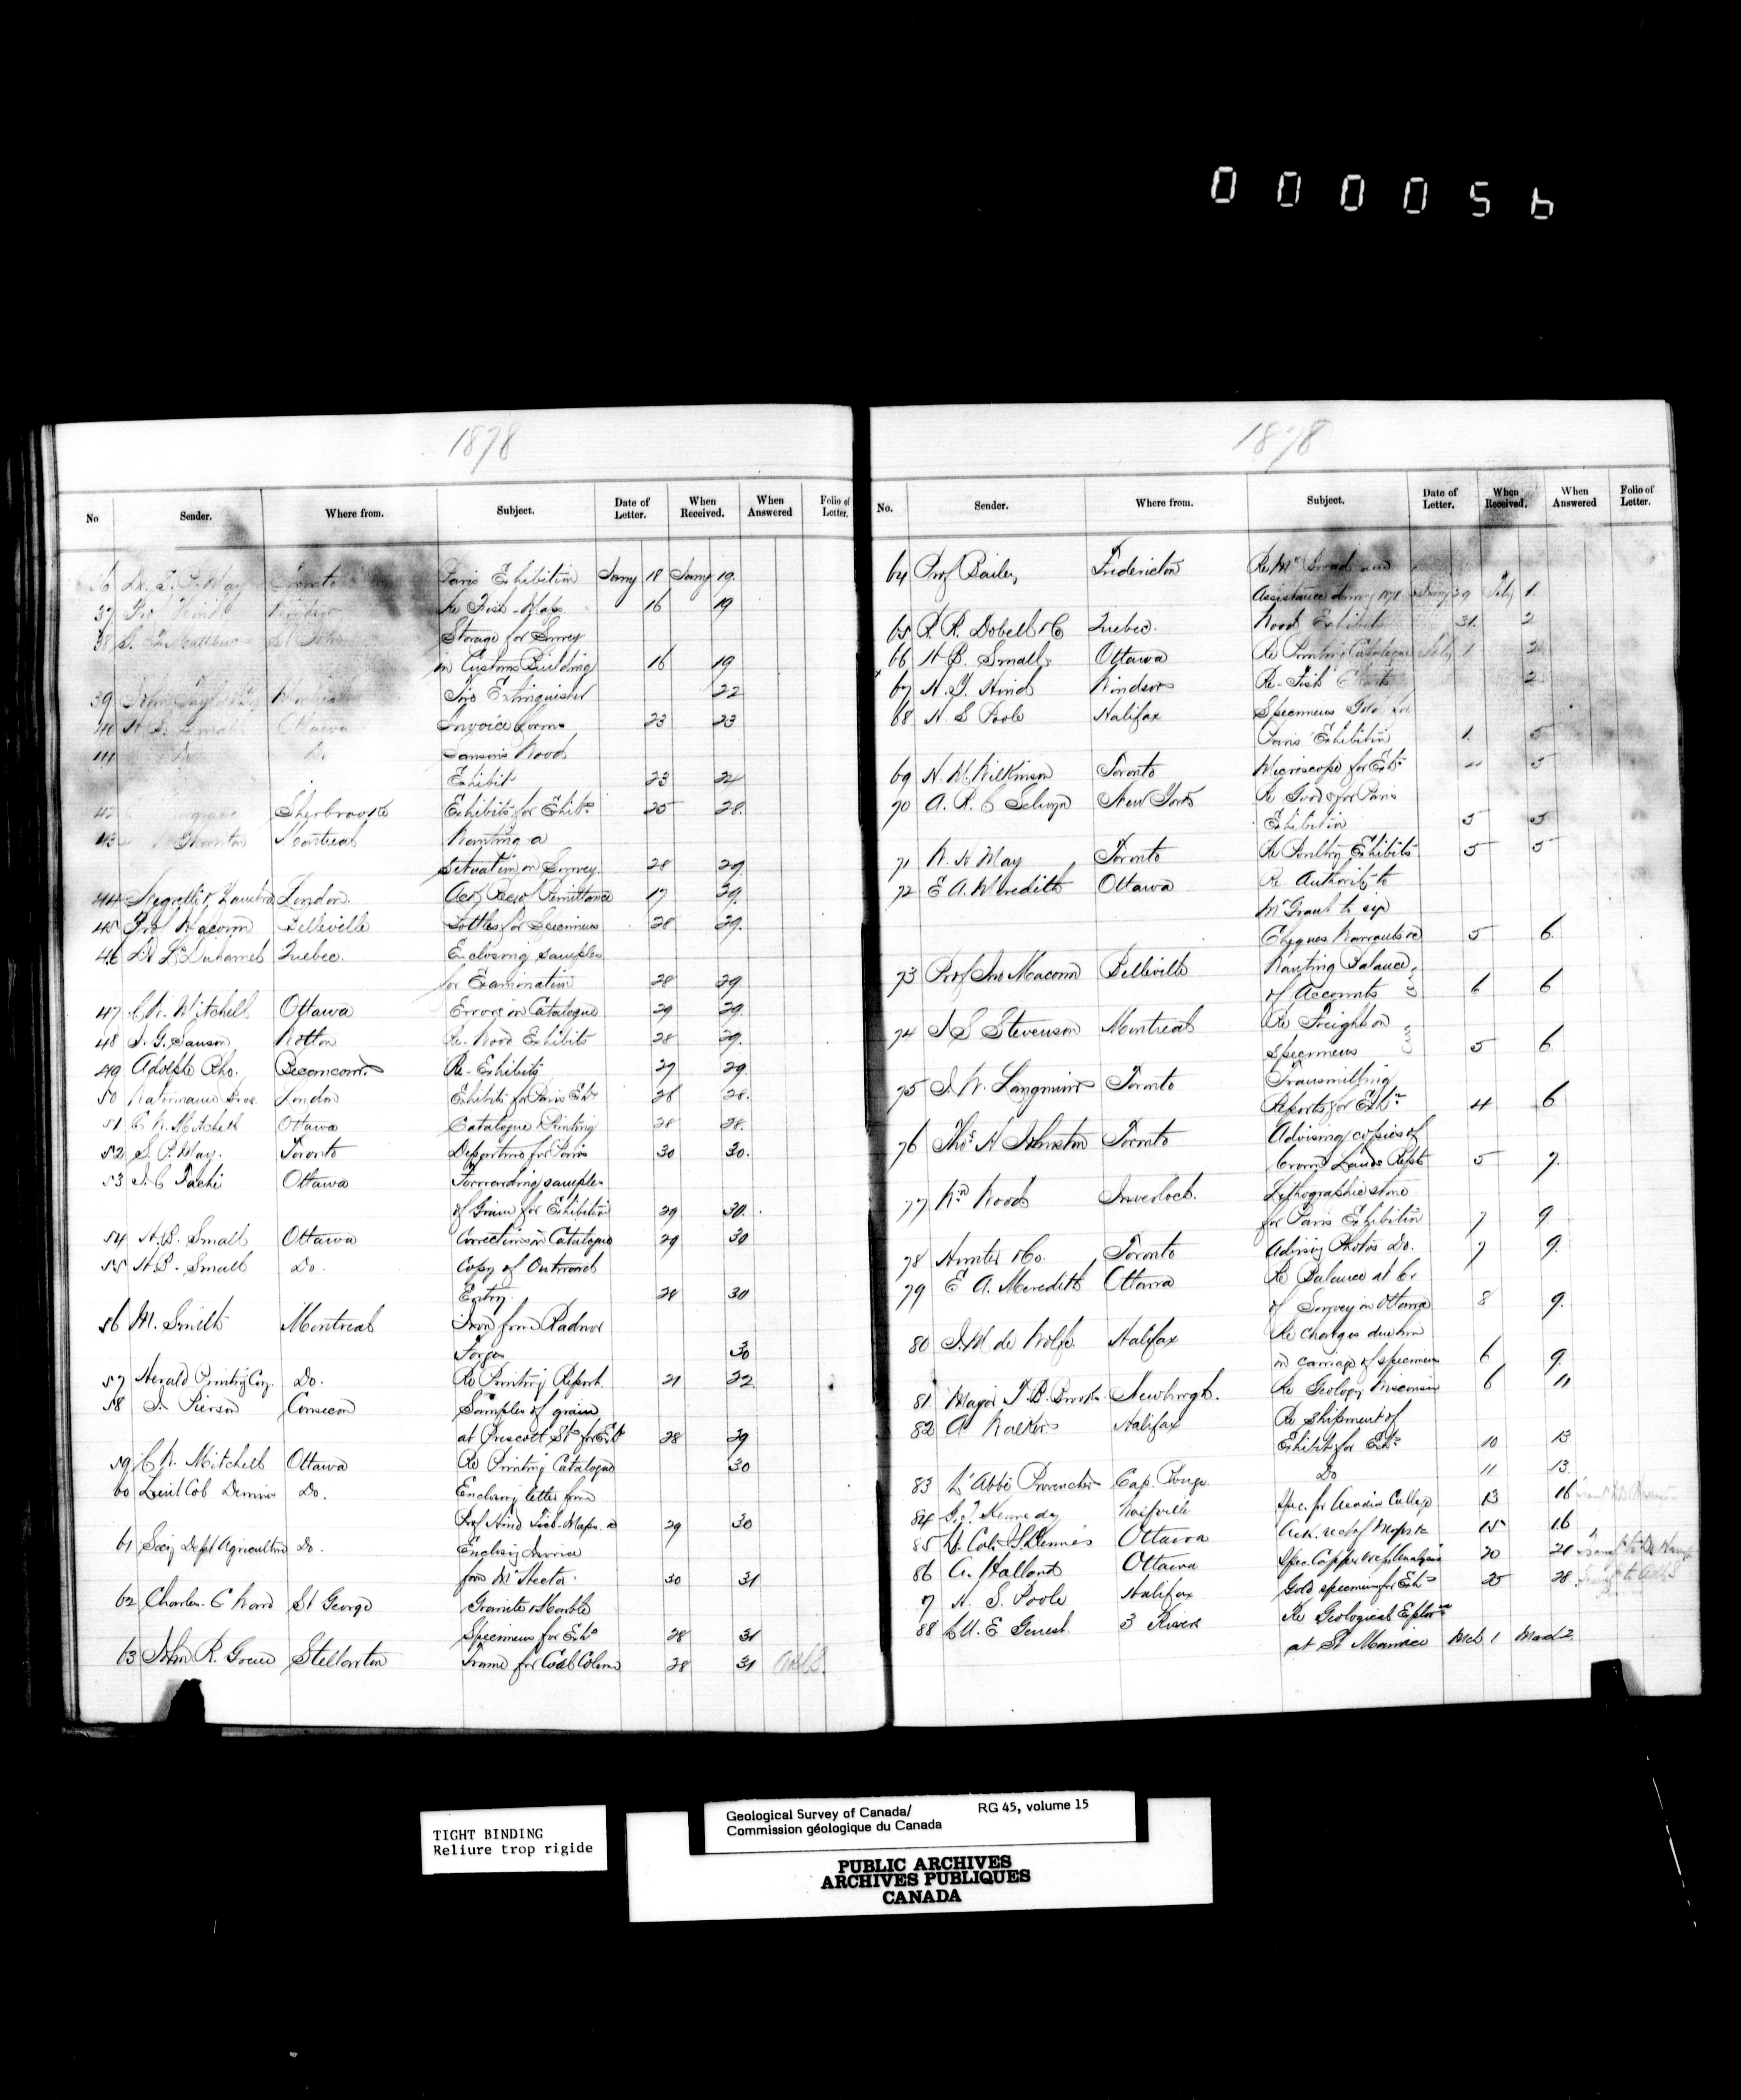 0 0 0 0 5 6
1878
No Sender. Where from. Subject. Date of Letter. When Received. When Answered Folio of Letter.
36 Dr. S. P. May Toronto Paris Exhibition Jany 18 Jany 19.
37 Pro Hind Windsor Re Fish-Maps 16 19
38 G. F. Matthew St John Storage for Survey
in Customs Building 16 19
39 Fire Extinguisher 22
40 H. B. Small Ottawa Invoice forms 23 23
41 Do Do. Sansom's Wood
Exhibit 23 24
42 Sherbrooke Exhibits for Exhibn 25 28.
43 Montreal Wanting a
situation on Survey. 28 29.
44 Negretti & Zambra London. Remittance 17 29.
45 Prof Macoun Belleville Bottles for Specimens 28 29.
46 Duhamel Quebec. Enclosing samples
for Examination 28 29
47 C. W. Mitchell Ottawa Errors in Catalogue 29 29.
48 J. G. Sanson Wotton Re-Wood Exhibits 28 29.
49 Adolphe Rho. Becancour. Re-Exhibits 27 29.
50 Bros. London Exhibits for Paris Exn 26 28.
51 C W. Mitchell Ottawa Catalogue Printing 28 28.
52 S. P. May. Toronto Departure for Paris 30 30.
53 J. C Taché Ottawa Forwarding samples
of Grain for Exhibition 29 30.
54 H. B. Small Ottawa Corrections in Catalogue 29 30
55 H B. Small Do. Copy of Outward
Entry. 28 30
56 M. Smith Montreal Iron from Radnor
Forges 30
57 Herald Printing Coy. Do. Re Printing Report. 21 22
58 J. Pierson Consecon Samples of grain
at Prescott Stn for Exn 28 29
59 C W. Mitchell Ottawa Re Printing Catalogue 30
60 Lieut Col Dennis Do. Enclosing letter from
Prof Hind Fish-Maps 29 30
61 Secy Dept Agriculture Do. Enclosing Invoice
from Mr Hector. 30 31
62 Charles. C Ward St George Granite & Marble
Specimens for Exhn 28 31
63 John R. Stellarton Frame for Coal Column 28 31
1878
No. Sender. Where from. Subject. Date of Letter. When Received. When Answered Folio of Letter.
64 Prof Bailey Fredericton Re Mr Broad and
Assistance during 1878 Jany 29 Feby 1.
65 R. R. Dobell & Co Quebec. Wood Exhibits 31. 2
66 H B. Small Ottawa Re Printing Catalogue Feby 1 2
67 H. Y. Hind Windsor Re-Fish Charts 2
68 H. S Poole Halifax Specimens Gold for
Paris Exhibition 1. 5
69 H. W. Wilkinson Toronto Microscope for Exn " 5
70 A. R. C Selwyn New York Re Goods for Paris
Exhibition 5 5
71 May Toronto Re Poultry Exhibits 5 5
72 E A. Meredith Ottawa Re Authority to
Mr Grant to sign
Cheques Warrants &c 5 6.
73 Prof Jno Macoun Belleville Wanting Balance
of Accounts 6 6
74 J S Stevenson Montreal Re Freight on
Specimens 5 6
75 J. W. Langmuir Toronto Transmitting
Reports for Exhn 4 6
76 Thos H Johnston Toronto Advising copies of
Crown Lands Repts 5 7.
77 Wm Woods Inverlock. Lithographic stone
for Paris Exhibition 7 9
78 Hunter & Co. Toronto Advising Photos Do. 7 9.
79 E A. Meredith Ottawa Re Balance at Cr
of Survey in Ottawa 8 9.
80 J. M de Wolfe. Halifax Re charges due him
on carriage of specimens 6 9.
81 Major T. B. Brooks Newburgh. Re Geology Wisconsin 6 11
82 A Walker Halifax Re Shipment of
Exhibits for Exn 10 13
83 L'Abbé Provencher Cap. Rouge. Do 11 13.
84 G. T. Kennedy Wolfville Spec. for Acadia College 13 16
85 Lt. Col. J S Dennis Ottawa Ack. rect of Maps &c 15 16
86 A. Holland Ottawa Spec. Copper ore for Analysis 20 21
7 H. S. Poole Halifax Gold specimens for Exhn 25 28
88 E Genest. 3 Rivers Re Geological Explorn
at St Maurice Mch 1 March 2.
TIGHT BINDING
Reliure trop rigide
Geological Survey of Canada/ RG 45, volume 15
Commission géologique du Canada
PUBLIC ARCHIVES
ARCHIVES PUBLIQUES
CANADA